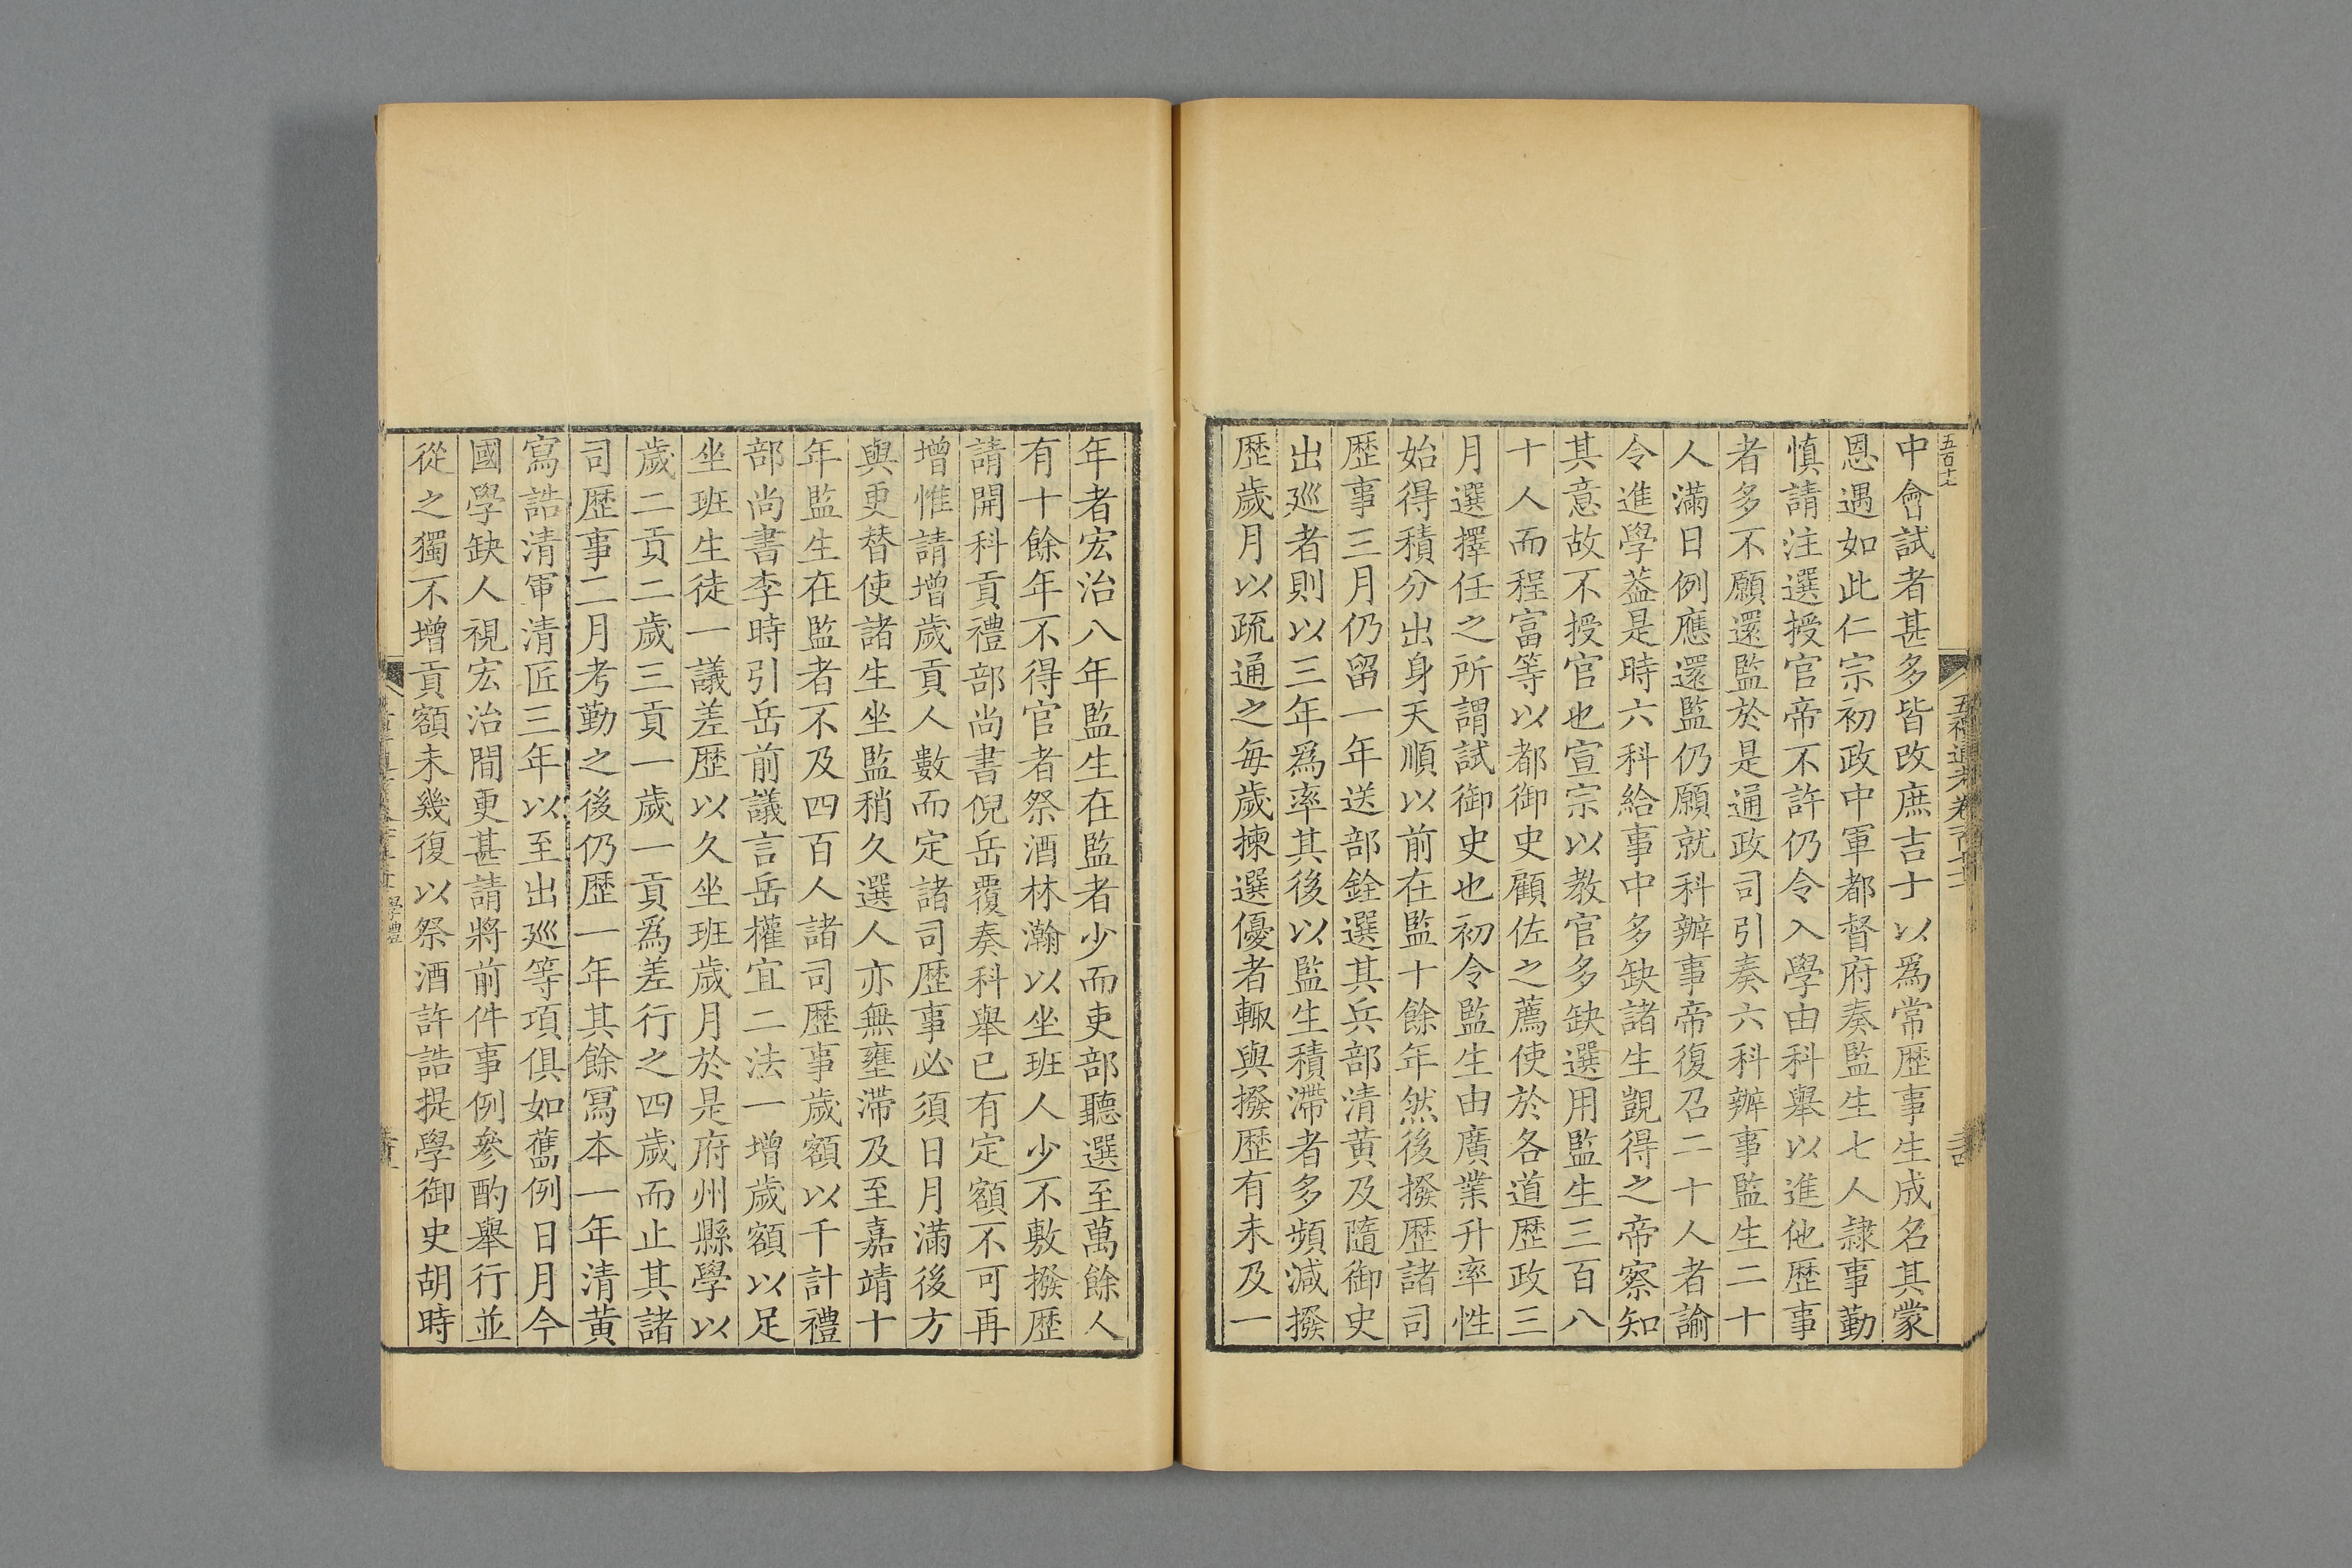 五百十七
中會試者甚多皆改庶吉士以爲常歷事生成名其蒙
恩遇如此仁宗初政中軍都督府奏監生七人隷事勤
慎請注選授官帝不許仍令入學由科舉以進他歷事
者多不願還監於是通政司引奏六科辦事監生二十
人滿日例應還監仍願就科辦事帝復召二十人者論
令進學葢是時六科給事中多缺諸生覬得之帝察知
其意故不授官也宣宗以教官多缺選用監生三百八
十人而程富等以都御史顧佐之薦使於各道歷政三
月選擇任之所謂試御史也初令監生由廣業升率性
始得積分出身天順以前在監十餘年然後撥歷諸司
歷事三月仍留一年送部銓選其兵部清黄及隨御史
出廵者則以三年爲率其後以監生積滯者多頻減撥
歷歲月以疏通之每歲揀選優者輙與撥歷有未及一
年者宏治八年監生在監者少而吏部聽選至萬餘人
有十餘年不得官者祭酒林瀚以坐班人少不敷撥歷
請開科貢禮部尚書倪岳覆奏科舉已有定額不可再
增惟請增歲貢人數而定諸司歷事必須日月滿後方
與更替使諸生坐監稍久選人亦無壅滯及至嘉靖十
年監生在監者不及四百人諸司歷事歲額以千計禮
部尚書李時引岳前議言岳權宜二法一增歲額以足
坐班生徒一議差歷以久坐班歲月於是府州縣學以
歲二貢二歲三貢一歲一貢爲差行之四歲而止其諸
司歷事二月考勤之後仍歷一年其餘冩本一年清黄
寫誥清軍清匠三年以至出廵等項俱如舊例日月今
國學缺人視宏治間更甚請將前件事例參酌舉行並
從之獨不增貢額未幾復以祭酒許誥提學御史胡時